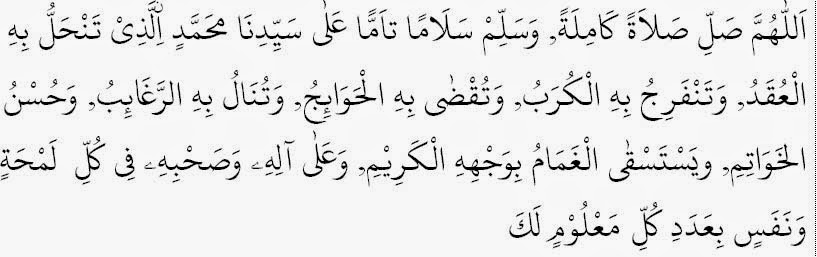 اَللّٰهُمَّ صَلِّ صَلَاَةً كَامِلَةً, وَسَلِّمْ سَلَامًا تاَمًّا عَلٰى سَيِّدِنَا محَمَّدٍ اِلَّذِىْ تَنْحَلُّ بِهِ
الْعُقَدُ, وَتَنْفَرِجُ بِهِ الْكُرَبُ, وَتُقْضٰى بِهِ الْحَوَائِجُ, وَتُنَالُ بِهِ الرَّغَائِبُ, وَحُسْنُ
الخَوَاتِمِ, ويَسْتَسْقٰى الْغَمَامُ بِوَجْهِهِ الْكَرِيْمِ, وَعَلٰى آلِهِ وَصَحْبِهِ فِى كُلِّ لَمْحَةٍ
وَنَفَسٍ بِعَدَدِ كُلِّ مَعْلُوْمٍ لَكَ